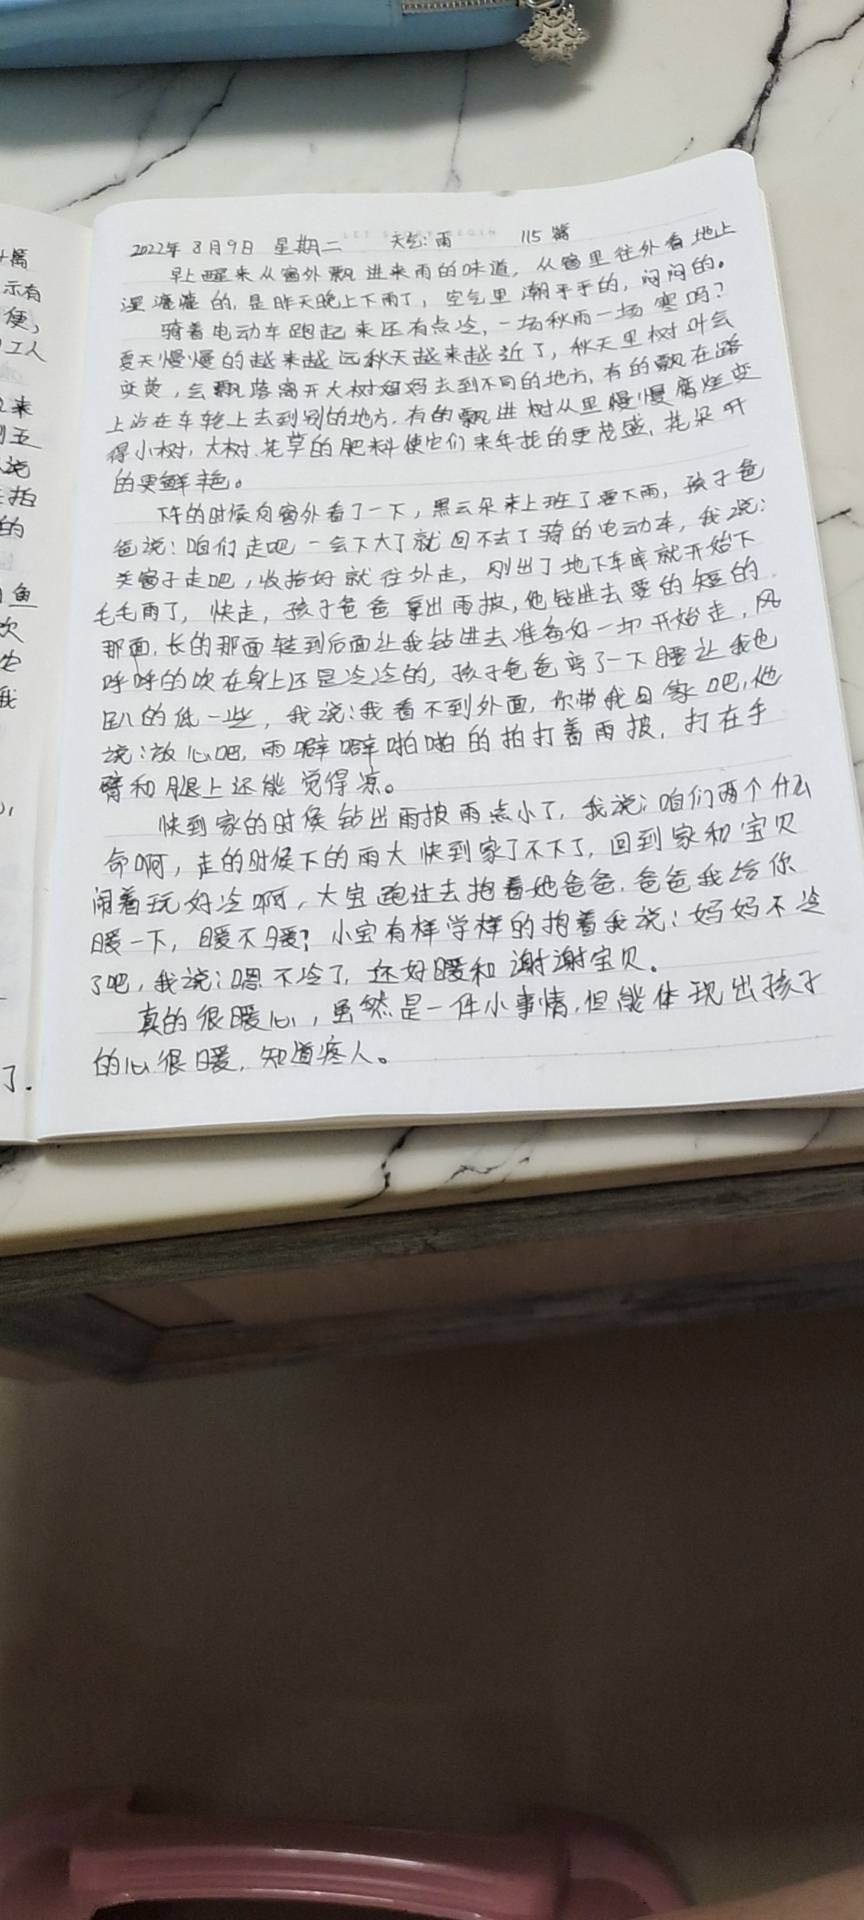 2022年8月9日 星期二 天气:雨 115篇
早上醒来从窗外飘进来雨的味道，从窗里往外看地上
湿漉漉的，是昨天晚上下雨了，空气里潮乎乎的，闷闷的。
骑着电动车跑起来还有点冷，一场秋雨一场寒吗？
夏天慢慢的越来越远秋天越来越近了，秋天里树叶会
变黄，会飘落离开大树妈妈去到不同的地方，有的飘在路
上沾在车轮上去到别的地方，有的飘进树从里慢慢腐烂变
得小树，大树、花草的肥料使它们来年长的更茂盛，花朵开
的更鲜艳。
下午的时候向窗外看了一下，黑云朵来上班了要下雨，孩子爸
爸说：咱们走吧一会下大了就回不去了骑的电动车，我说：
关窗子走吧，收拾好就往外走，刚出了地下车库就开始下
毛毛雨了，快走，孩子爸爸拿出雨披，他钻进去要的短的
那面，长的那面转到后面让我钻进去准备好一切开始走，风
呼呼的吹在身上还是冷冷的，孩子爸爸弯了一下腰让我也
趴的低一些，我说：我看不到外面，你带我回家吧，他
说：放心吧，雨噼噼啪啪的拍打着雨披，打在手
臂和腿上还能觉得凉。
快到家的时候钻出雨披雨点小了，我说：咱们两个什么
命啊，走的时候下的雨大快到家了不下了，回到家和宝贝
闹着玩好冷啊，大宝跑过去抱着她爸爸，爸爸我给你
暖一下，暖不暖？小宝有样学样的抱着我说：妈妈不冷
了吧，我说：嗯不冷了，还好暖和谢谢宝贝。
真的很暖心，虽然是一件小事情，但能体现出孩子
的心很暖，知道疼人。
篇
示有
便，
工人
来
五
说
拍
的
鱼
欠
我
了.